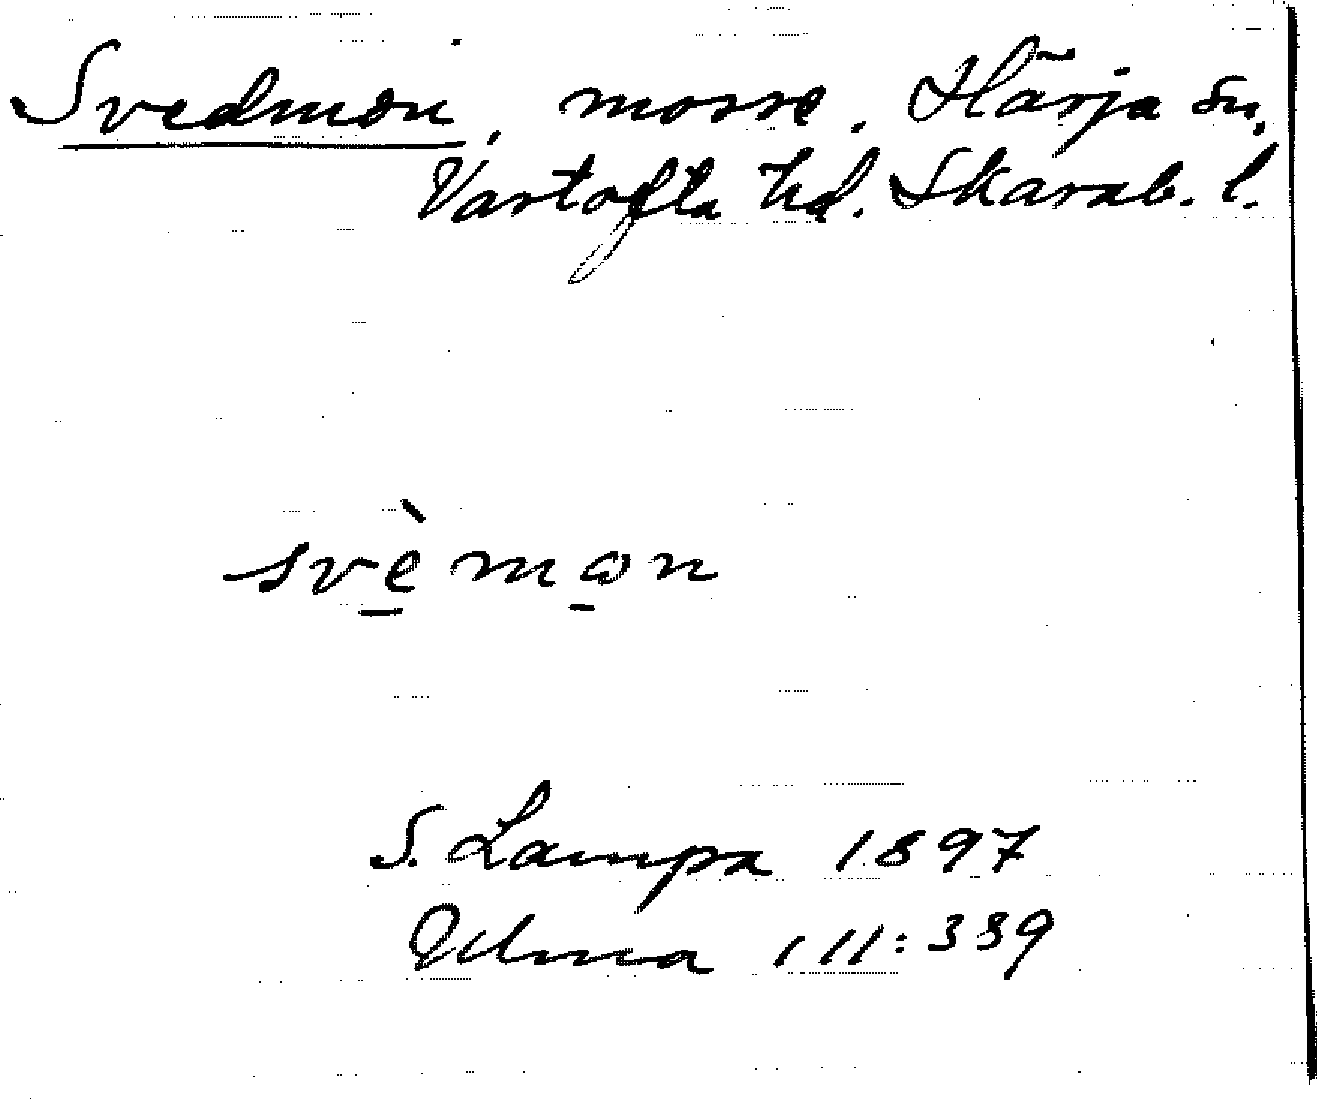 Svedmon, mosse. Härja sn,
Vartofta hd. Skarab. l.
svèmon
S. Lampa 1897
Ulma 111:339